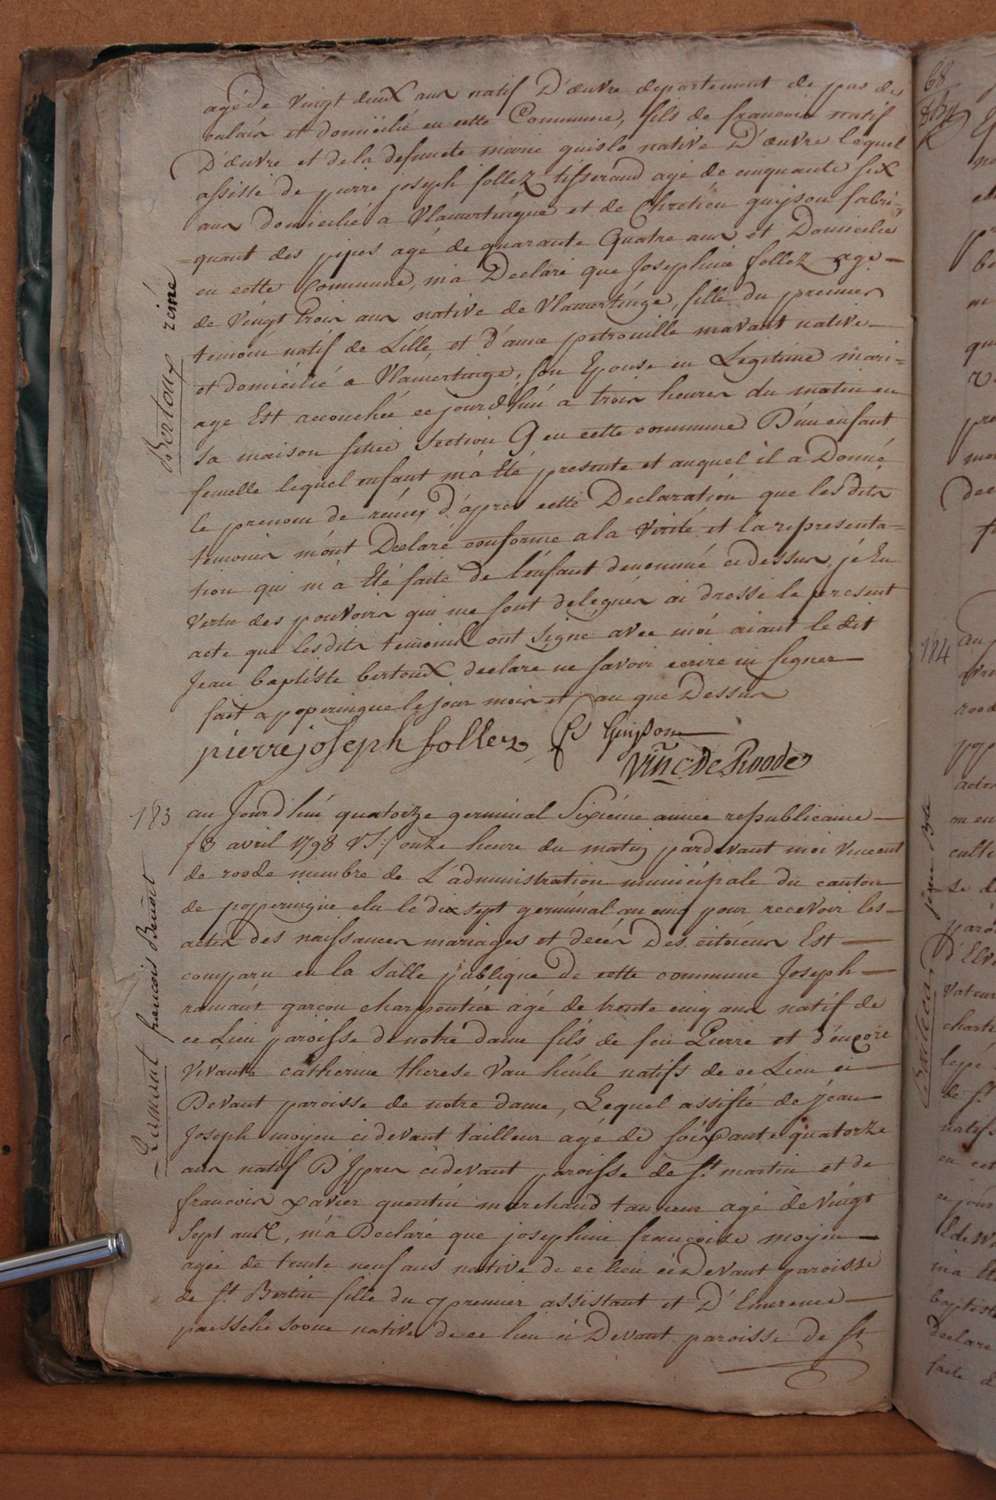 agé de vingt deux ans natif D'œuvre departement de pas de
calais et domicilié en cette Commune, fils de francois natif
D'œuvre et de la defuncte marie quislo native D'œuvre lequel
assisté de pierre joseph follez tisserand agé de cinquante six
ans domicilié a Vlamertingue et de Chretien guyson fabri-
quant des pipes agé de quarante quatre ans et Domicilie
en cette Commune, m'a Declaré que Josephine follez age
de vingt trois ans native de Vlamertinge, fille du premier
temoin natif de Lille, et d'anne petronille mavant native
et domicilié a Vlamertinge, son Epouse en Legitime mari-
age Est accouchée cejourd'hui a trois heures du matin en
sa maison située Section G en cette commune D'un enfant
femelle lequel enfant m'a Eté presenté et auquel il a Donné
le prenom de réiné, d'apres cette Declaration que les dits
temoins m'ont Declaré conforme a la verité et la representa-
tion qui m'a Eté faite de l'enfant denommé ci dessus, jé En
vertu des pouvoirs qui me sont delegués ai dressé le present
acte que lesdits temoins ont signé avec moi aiant le dit
Jean baptiste bertoux declaré ne savoir ecrire ni signer
fait a poperingue le jour mois et an que Dessus
pierre joseph follez Guisson
Vinc De Roode
Bertoux réiné
183
au Jourd'hui quatorze germinal Sixiéme année republicaine
/ 3 avril 1798 V:S:/ onze heure du matin pardevant moi vincent
de roode membre de L'administration municipale du canton
de poperingue elu le dix sept germinal an cinq pour recevoir les
actes des naissances mariages et décès Des citoiens Est
comparu en la Salle publique De cette commune Joseph
ramaut garcon charpentier agé de trente cinq ans natif de
ce Lieu paroisse de notre dame fils de feu Pierre et d'encore
vivante catherine therese van heule natifs de ce Lieu ci
Devant paroisse de notre dame, Lequel assisté de jean
Joseph moyen ci devant tailleur agé de soixante quatorze
ans natif D'Ypres cidevant paroisse de St. martin et de
francois xavier quentin marchand tanneur agé de vingt
Sept ans, m'a Declaré que josephine francoise moyen
agée de trente neuf ans native de ce lieu ci Devant paroisse
de St. Bertin fille du premier assistant et D'Emerence
native de ce lieu ci Devant paroisse de St.
Ramaut francois Benoit
68
184